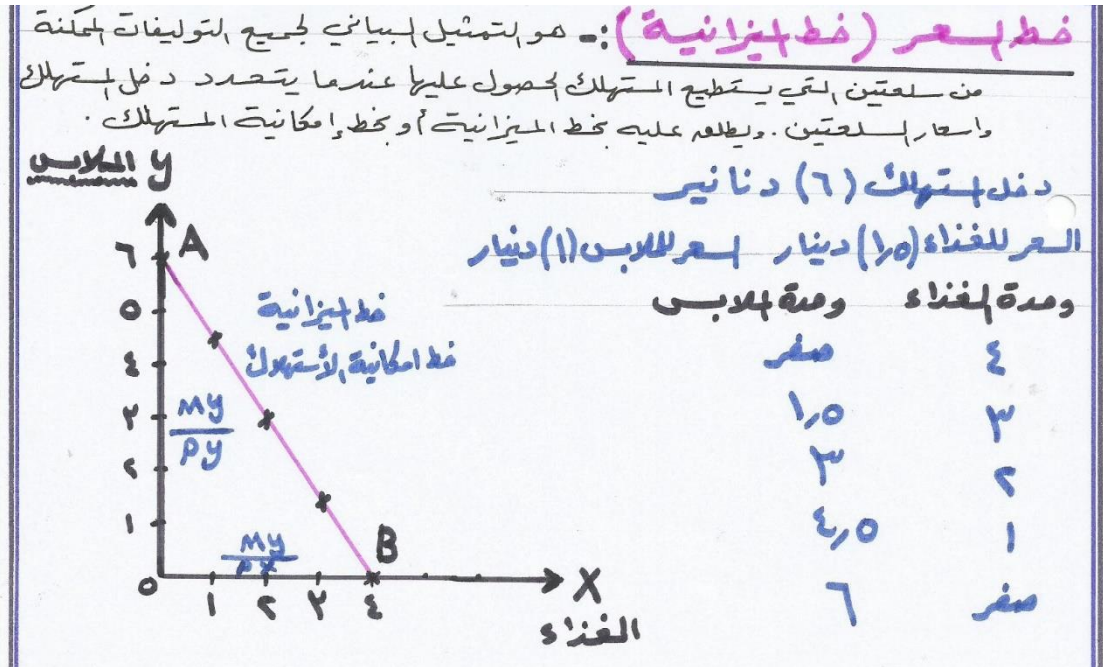 خط السعر (خط الميزانية) :- هو التمثيل البياني لجميع التوليفات الممكنة
من سلعتين التي يستطيع المستهلك الحصول عليها عندما يتحدد دخل المستهلك
واسعار السلعتين . ويطلق عليه بخط الميزانية أو بخط إمكانية المستهلك .
دخل المستهلك (٦) دنانير
السعر للغذاء (١٫٥) دينار السعر للملابس (١) دينار
وحدة الغذاء وحدة الملابس
٤ صفر
٣ ١٫٥
٢ ٣
١ ٤٫٥
صفر ٦
الملابس y
A
٦
٥
٤
٣
٢
١
٥
خط الميزانية
خط امكانية الأستهلاك
My
Py
My
PX
B
١ ٢ ٣ ٤
X
الغذاء